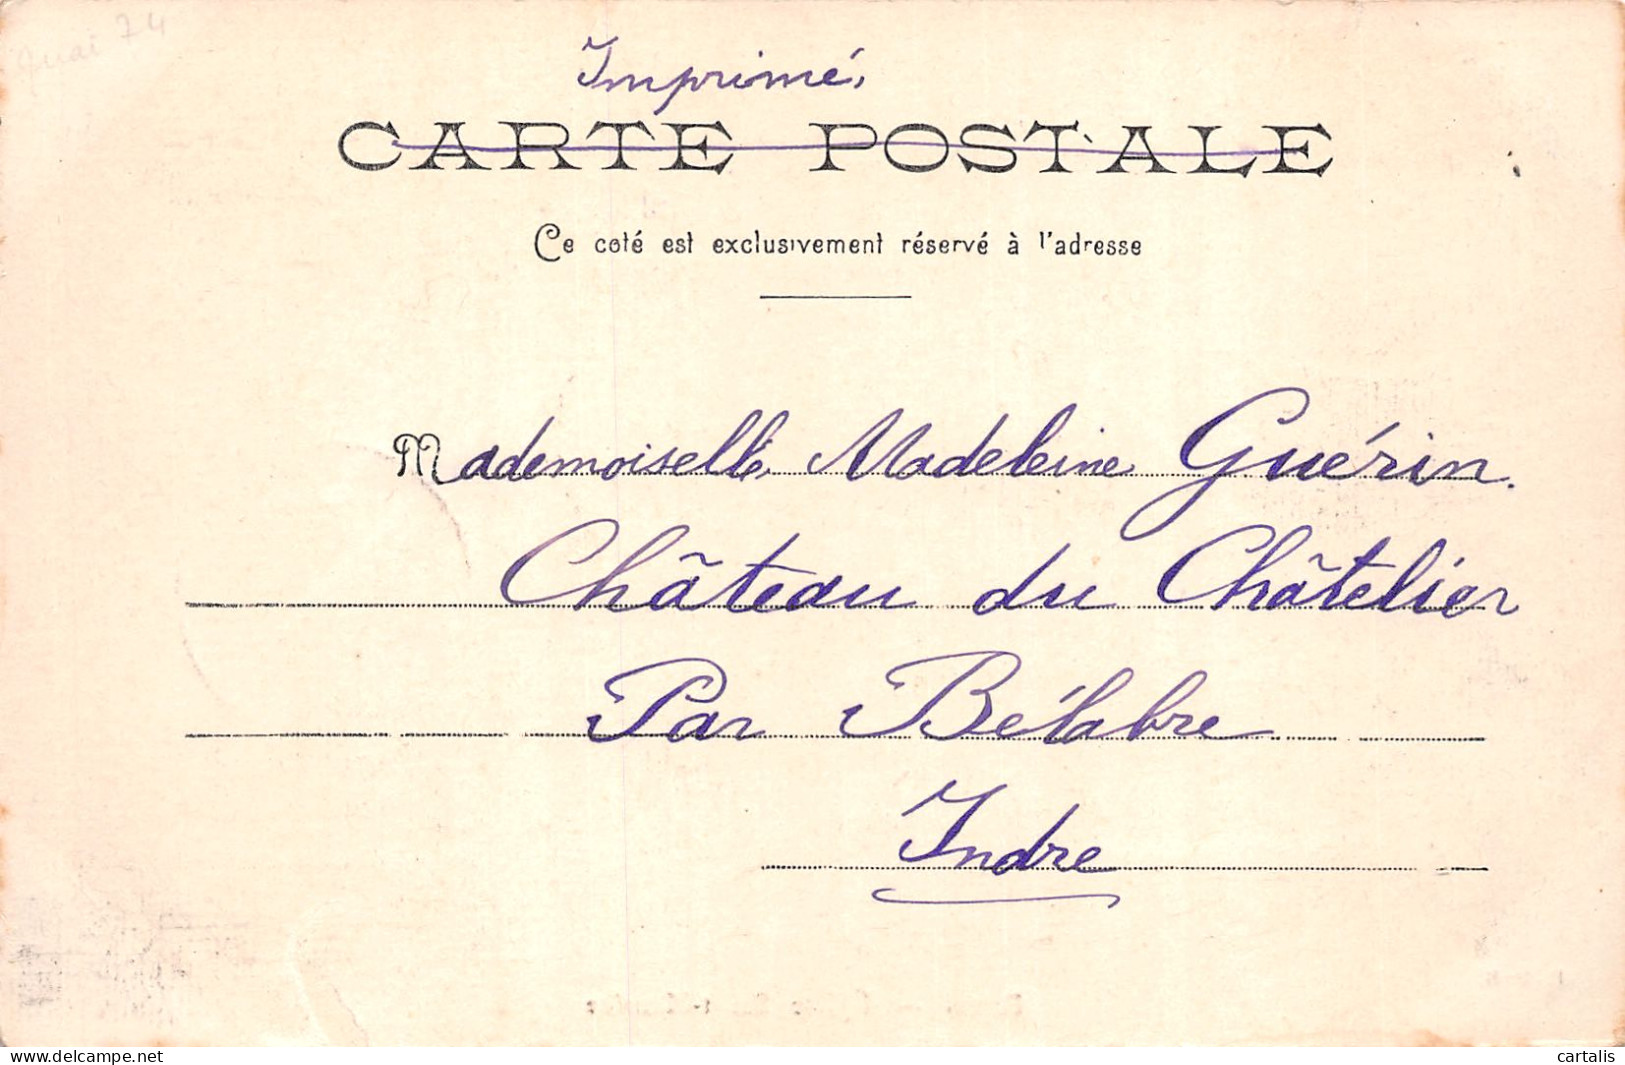 Quai 74
Imprimé.
CARTE POSTALE
Ce coté est exclusivement réservé à l'adresse
Mademoiselle Madeleine Guérin.
Château du Châtelier
Par Bélabre
Indre
www.delcampe.net
cartalis